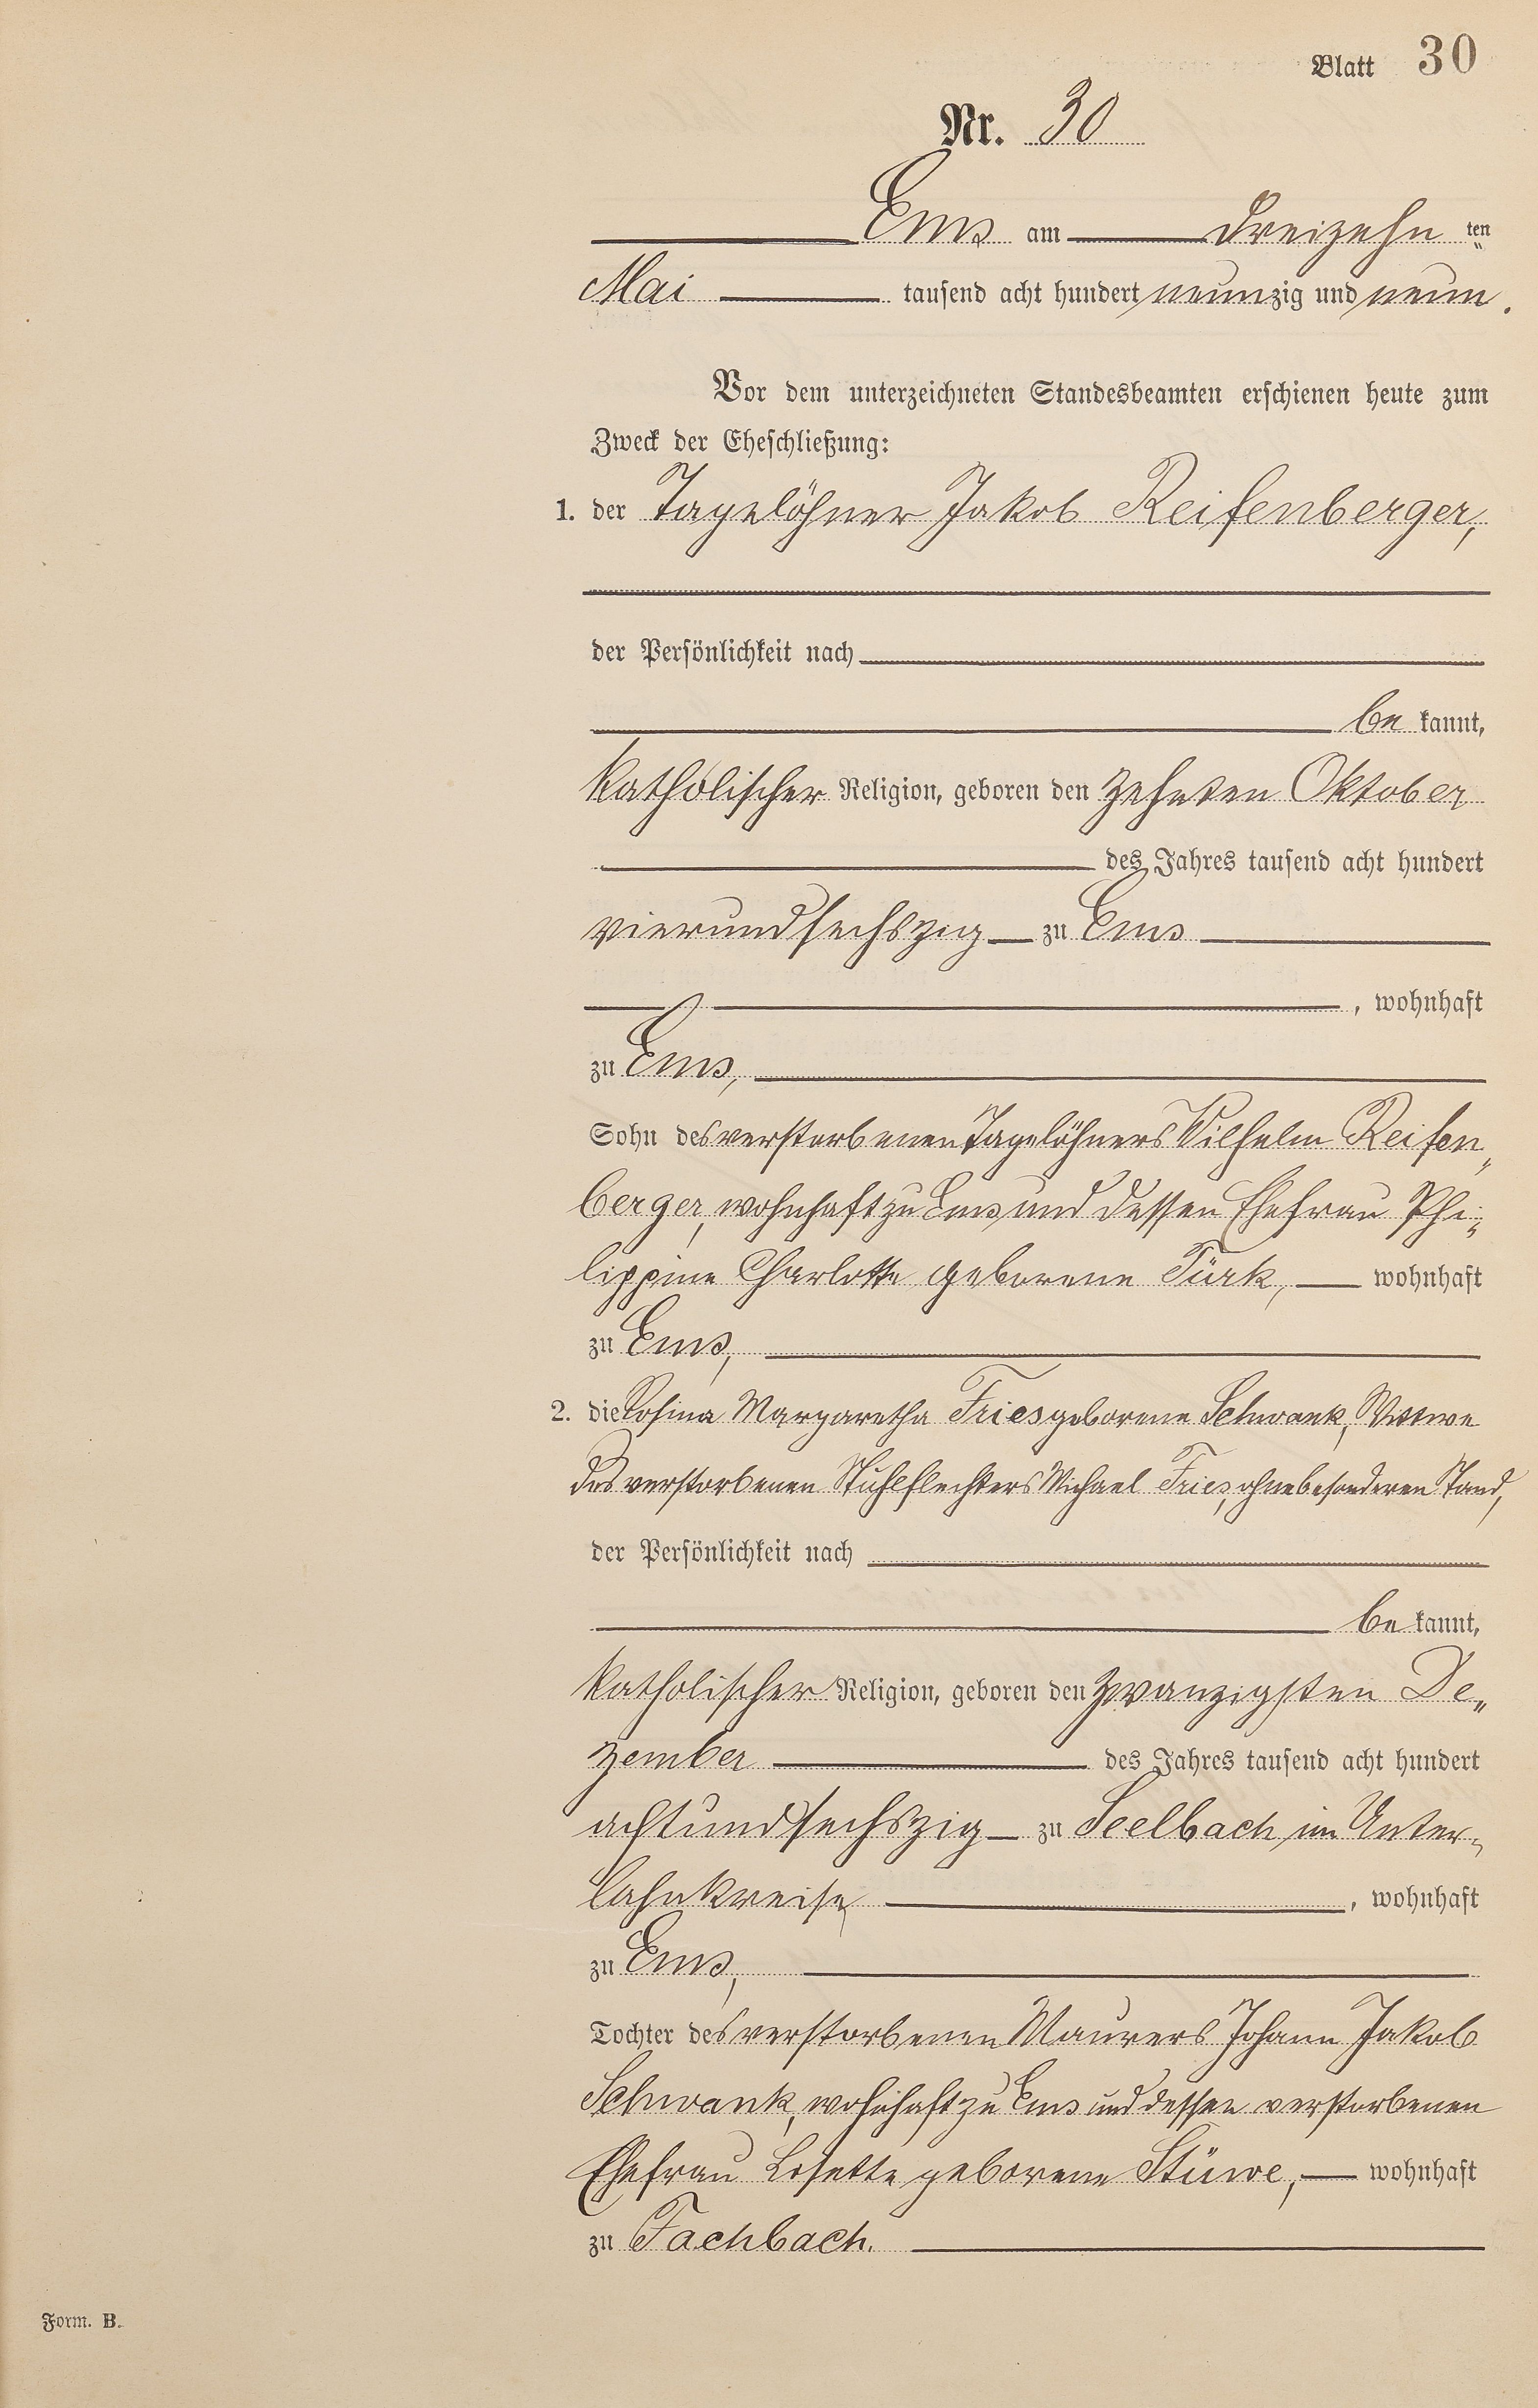 Blatt 30
Nr. 30
Ems am Dreizehn ten
Mai tausend acht hundert neunzig und neun.
Vor dem unterzeichneten Standesbeamten erschienen heute zum
Zweck der Eheschließung:
1. der Tagelöhner Jakob Reifenberger,
der Persönlichkeit nach
be kannt,
katholischer Religion, geboren den zehnten Oktober
des Jahres tausend acht hundert
vierundsechszig zu Ems
, wohnhaft
zu Ems,
Sohn des verstorbenen Tagelöhners Wilhelm Reifen„
berger, wohnhaft zu Ems und dessen Ehefrau Phi„
lippine Charlotte geborene Türk, wohnhaft
zu Ems,
2. die Rosina Margaretha Fries geborene Schwank, Wittwe
des verstorbenen Stuhlflechters Michael Fries, ohne besonderen Stand,
der Persönlichkeit nach
be kannt,
katholischer Religion, geboren den zwanzigsten De„
zember des Jahres tausend acht hundert
achtundsechszig zu Seelbach im Unter„
lahnkreise, wohnhaft
zu Ems,
Tochter des verstorbenen Maurers Johann Jakob
Schwank, wohnhaft zu Ems und dessen verstorbenen
Ehefrau Losette geborene Stüwe, wohnhaft
zu Fachbach.
Form. B.